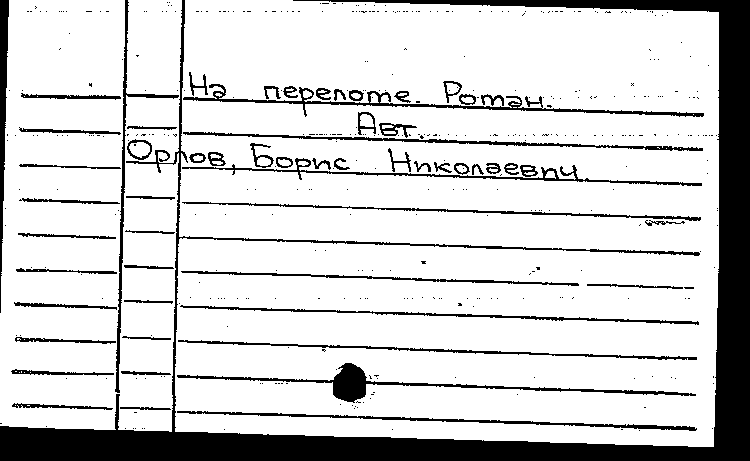 На переломе. Роман.
Авт.
Орлов, Борис Николаевич.